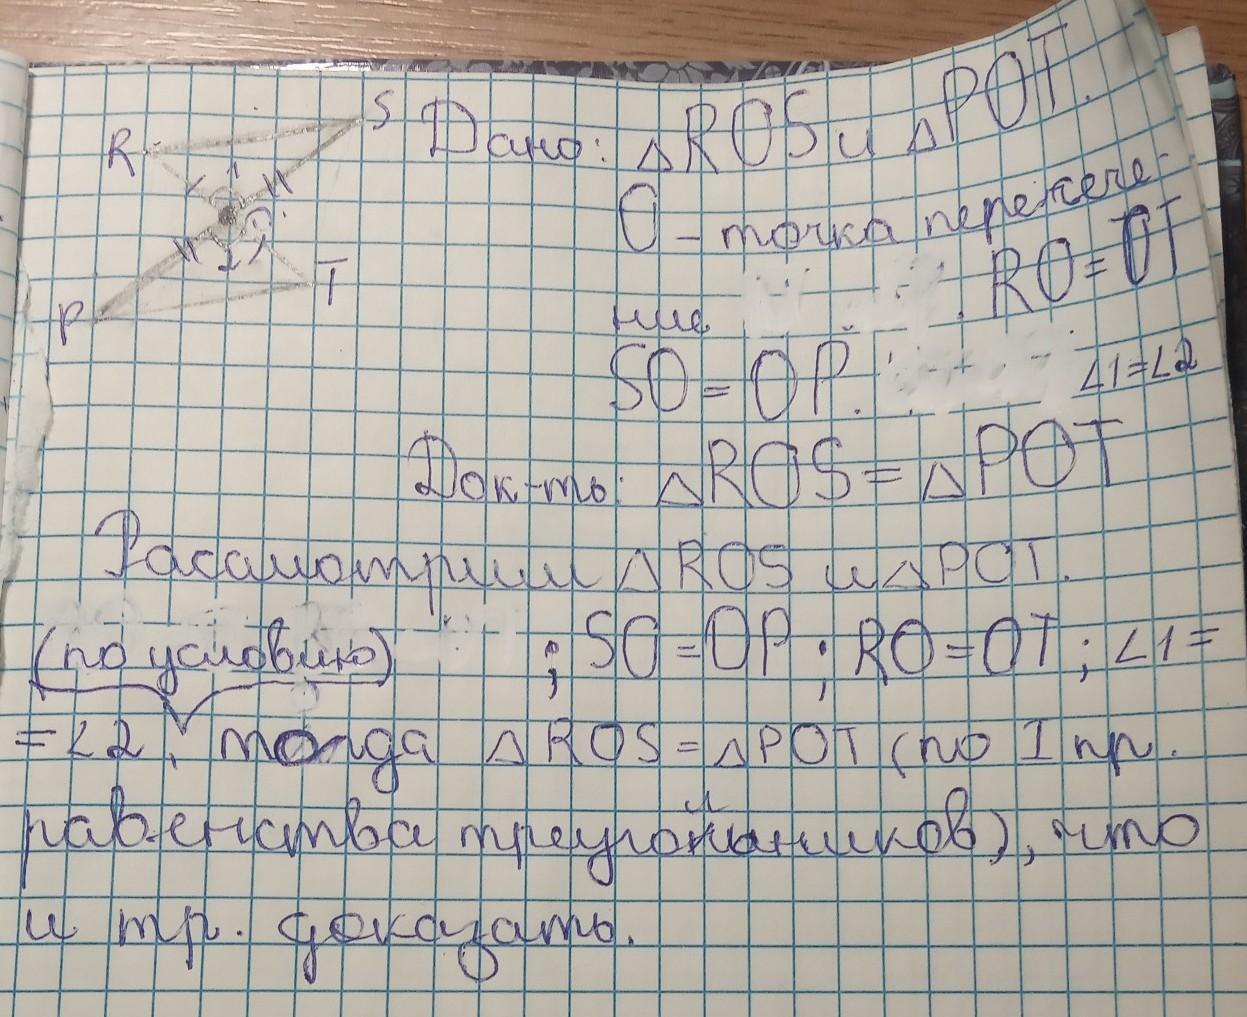 R S Дано: △ROS и △POT.
1
2
P T
O - точка пересече-
ние. RO = OT
SO = OP. ∠1=∠2
Док-ть: △ROS = △POT
Рассмотрим △ROS и △POT.
(по условию) ; SO = OP ; RO = OT ; ∠1 =
= ∠2, тогда △ROS = △POT (по I пр.
равенства треугольников), что
и тр. доказать.